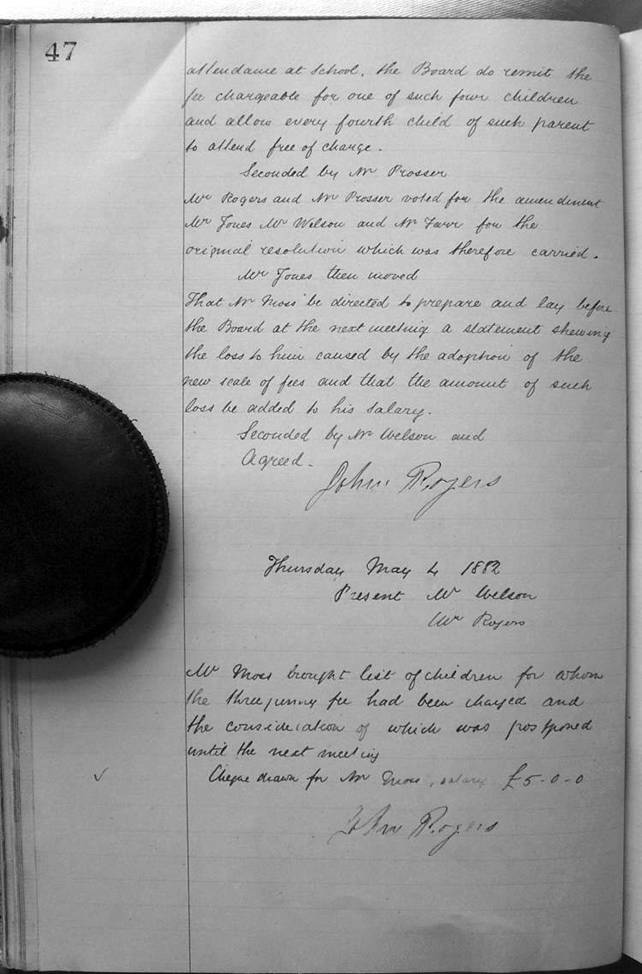 47
attendance at School, the Board do remit the
fee chargeable for one of such four children
and allow every fourth child of such parent
to attend free of charge.
Seconded by Mr Prosser
Mr Rogers and Mr Prosser voted for the amendment
Mr Jones Mr Welson and Mr Farr for the
original resolution which was therefore carried.
Mr Jones then moved
That Mr Moss be directed to prepare and lay before
the Board at the next meeting a statement shewing
the loss to him caused by the adoption of the
new scale of fees and that the amount of such
loss be added to his salary.
Seconded by Mr Welson and
Agreed.
John Rogers
Thursday May 4 1882
Present Mr Welson
Mr Rogers
Mr Moss brought list of children for whom
the threepenny fee had been charged and
the consideration of which was postponed
until the next meeting
Cheque drawn for Mr Moss, salary £5-0-0
John Rogers